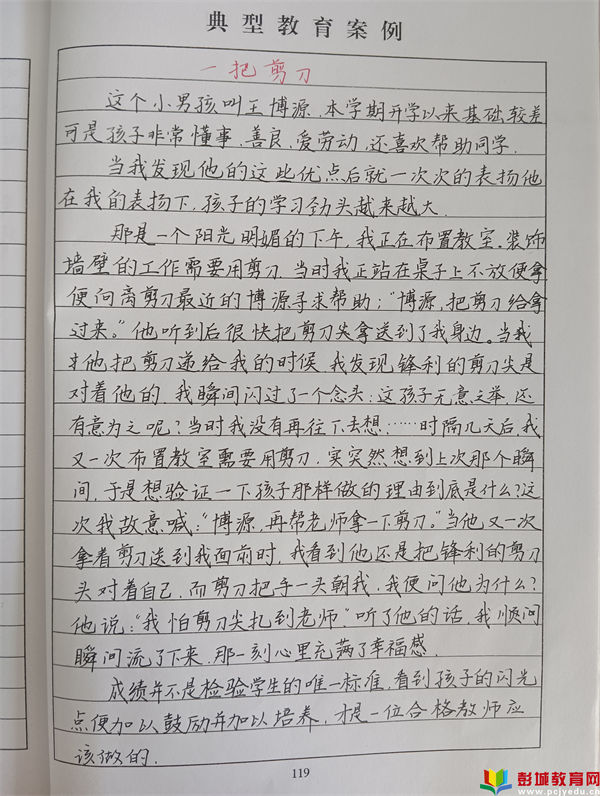 典型教育案例
一把剪刀
这个小男孩叫王博源,本学期开学以来基础较差
可是孩子非常懂事、善良、爱劳动,还喜欢帮助同学.
当我发现他的这些优点后就一次次的表扬他
在我的表扬下,孩子的学习劲头越来越大.
那是一个阳光明媚的下午,我正在布置教室.装饰
墙壁的工作需要用剪刀.当时我正站在桌子上不放便拿
便向离剪刀最近的博源寻求帮助:“博源,把剪刀给拿
过来。”他听到后很快把剪刀尖拿送到了我身边。当我
他把剪刀递给我的时候,我发现锋利的剪刀尖是
对着他的.我瞬间闪过了一个念头:这孩子无意之举,还
有意为之呢?当时我没有再往下去想……时隔几天后,我
又一次布置教室需要用剪刀.实突然想到上次那个瞬
间,于是想验证一下孩子那样做的理由到底是什么?这
次我故意喊:“博源,再帮老师拿一下剪刀。”当他又一次
拿着剪刀送到我面前时,我看到他还是把锋利的剪刀
头对着自己.而剪刀把手一头朝我,我便问他为什么?
他说:“我怕剪刀尖扎到老师.”听了他的话,我
瞬间流了下来.那一刻心里充满了幸福感.
成绩并不是检验学生的唯一标准,看到孩子的闪光
点便加以鼓励并加以培养,才是一位合格教师应
该做的.
119
彭城教育网
www.pcjyedu.cn